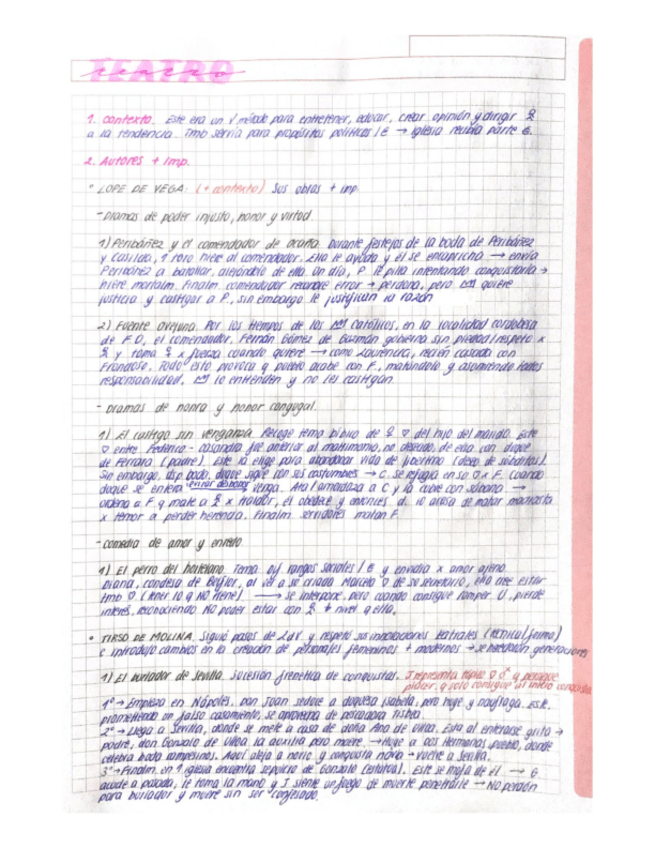 TEATRO
1. Contexto. Este era un √ método para entretener, educar, crear opinión y dirigir ♀
a la tendencia. Tmb servía para propósitos políticos / € → iglesia recibía parte €.
2. Autores + imp.
• LOPE DE VEGA: (+ contexto) Sus obras + imp
- Dramas de poder injusto, honor y virtud.
1) Peribáñez y el comendador de Ocaña. Durante festejos de la boda de Peribáñez
y Casilda, 1 toro hiere al comendador. Ella le ayuda y él se encapricha → envía
Peribáñez a batallar, alejándolo de ella. Un día, P. le pilla intentando conquistarla →
hiere mortalm. Finalm. comendador reconoce error → perdona, pero quiere
justicia y castigar a P, sin embargo le justifican la razón
2) Fuente Ovejuna. Por los tiempos de los Católicos, en la localidad cordobesa
de F.O, el comendador, Fernán Gómez de Guzmán gobierna sin piedad/respeto x
♀ y toma ♀ x fuerza cuando quiere → como Laurencia, recién casada con
Frondoso. Todo esto provoca q pueblo acabe con F, matándolo y asumiendo todos
responsabilidad. lo entienden y no les castigan.
- Dramas de honra y honor conyugal.
1) El castigo sin venganza. Recoge tema bíblico de ♀ ♡ del hijo del marido. Este
♡ entre Federico - Casandra fue anterior al matrimonio, no deseado, de ella con duque
de Ferrara (padre). Este la elige para abandonar vida de libertino (deseo de súbditos).
Sin embargo, dsp boda, duque sigue con sus costumbres → C. se refugia en su ♡ x F. Cuando
duque se entera venga. Ata/amordaza a C y la cubre con sábana →
ordena a F q mate a ♀ x traidor, él obedece y entonces d. lo acusa de matar madrastra
x temor a perder herencia. Finalm. servidores matan F.
- Comedia de amor y enredo
1) El perro del hortelano. Tema dif rangos sociales / € y envidia x amor ajeno.
Diana, condesa de Belflor, al ver a su criada Marcela ♡ de su secretario, ella cree estar
tmb ♡ (tener lo q NO tiene). → se interpone, pero cuando consigue romper U, pierde
interés, reconociendo NO poder estar con ♀ ↓ nivel q ella.
• TIRSO DE MOLINA. Siguió pasos de LdV. y respetó sus innovaciones teatrales (técnica/forma)
e introdujo cambios en la creación de personajes femeninos + modernos → se heredan generaciones
1) El burlador de Sevilla. Sucesión frenética de conquistas. J representa típico ♡ ♂ q persigue
placer, q solo consigue al inicio conquista
1º → Empieza en Nápoles, don Juan seduce a duquesa Isabela, pero huye y naufraga. Este,
prometiendo un falso casamiento, se aprovecha de pescadora Tisbea.
2º → Llega a Sevilla, donde se mete a casa de doña Ana de Ulloa. Esta al enterarse grita →
padre, don Gonzalo de Ulloa la auxilia pero muere. → Huye a Dos Hermanas, pueblo, donde
celebra boda campesinos. Aquí aleja a novio y conquista novia → vuelve a Sevilla.
3º → Finalm. en 1 iglesia encuentra sepulcro de Gonzalo (estatua). Este se mofa de él. → G
acude a posada, le toma la mano y J siente un fuego de muerte penetrarle → NO perdón
para burlador y muere sin ser confesado.